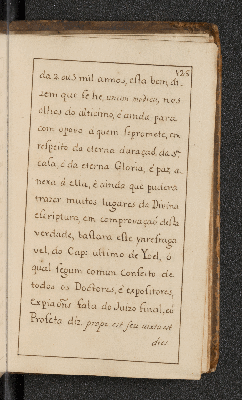 125
da 2 ou 3 mil annos, esta bem, di-
zem que se he, unum modicu, nos
olhos do altissimo, é ainda para
com o povo a quem se promete, em
respeito da eterna duração, da
caza, é da eterna Gloria, é paz, a-
nexa á ella, é ainda que pudera
trazer muitos lugares da Divina
escriptura, em comprovação desta
verdade, bastara este
vel, do Cap: ultimo de Yoel, o
qual segum comun Conseito de
todos os Doctores, é expositores,
fala do Juizo final, é o
Profeta diz. prope est
dies